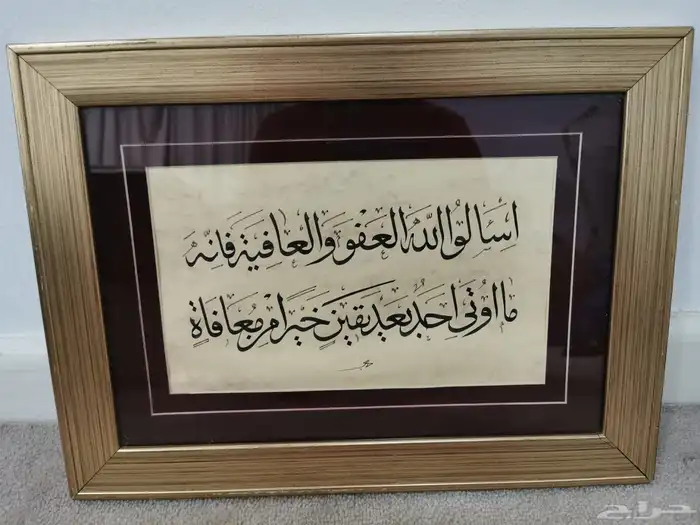 اِسْأَلُوا اللّٰهَ الْعَفْوَ وَالْعَافِيَةَ فَاِنَّهُ
مَا اُوتِيَ اَحَدٌ بَعْدَ يَقِينٍ خَيْرًا مِنْ مُعَافَاةٍ
حراج